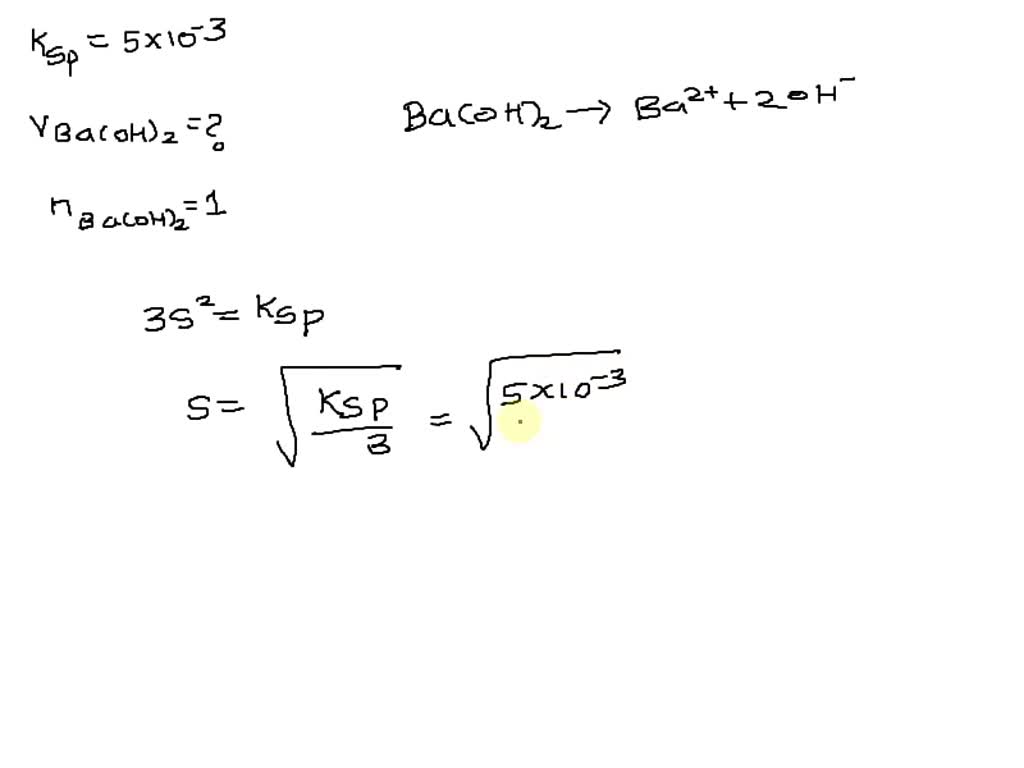 Ksp = 5×10⁻³
VBa(OH)₂ = ?
Ba(OH)₂ → Ba²⁺ + 2OH⁻
nBa(OH)₂ = 1
3S² = Ksp
S = √(Ksp/3) = √(5×10⁻³